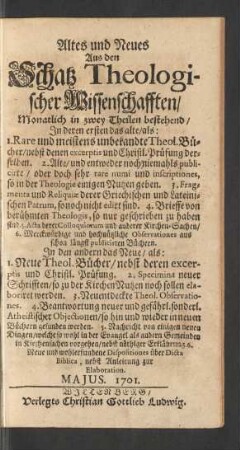 Altes und Neues
Aus den
Schatz Theologi-
scher Wissenschafften/
Monatlich in zwey Theilen bestehend/
In deren ersten das alte/als:
1. Rare und meistens unbekandte Theol. Bü-
cher/nebst denen excerptis und Christl. Prüfung der-
selben. 2. Alte/und entweder noch niemahls publi-
cirte/ oder doch sehr rare numi und inscriptiones,
so in der Theologie einigen Nutzen geben. 3. Frag-
menta und Reliquiæ derer Griechischen und Lateini-
schen Patrum, so noch nicht edirt sind. 4. Brieffe von
berühmten Theologis, so nur geschrieben zu haben
sind 5. Acta derer Colloquiorum und anderer Kirchen-Sachen/
6. Merckwürdige und hochnützliche Observationes aus
schon längst publicirten Büchern.
In den andern das Neue/ als:
1. Neue Theol. Bücher/ nebst deren excer-
ptis und Christl. Prüfung. 2. Specimina neuer
Schrifften/so zu der Kirchen Nutzen noch sollen ela-
boriret werden. 3. Neuentdeckte Theol. Observatio-
nes. 4. Beantwortung neuer und gefährl. sonderl.
Atheistischer Objectionen/so hin und wieder in neuen
Büchern gefunden werden. 5. Nachricht von einigen neuen
Dingen/welche so wohl in der Evangel. als andern Gemeinden
in Kirchensachen vorgehen/nebst nöthiger Erklärung 6.
Neue und wohlersundene Dispositiones über Dicta
Biblica, nebst Anleitung zur
Elaboration.
MAJUS. 1701.
WITTENBERG/
Verlegts Christian Gottlieb Ludwig.